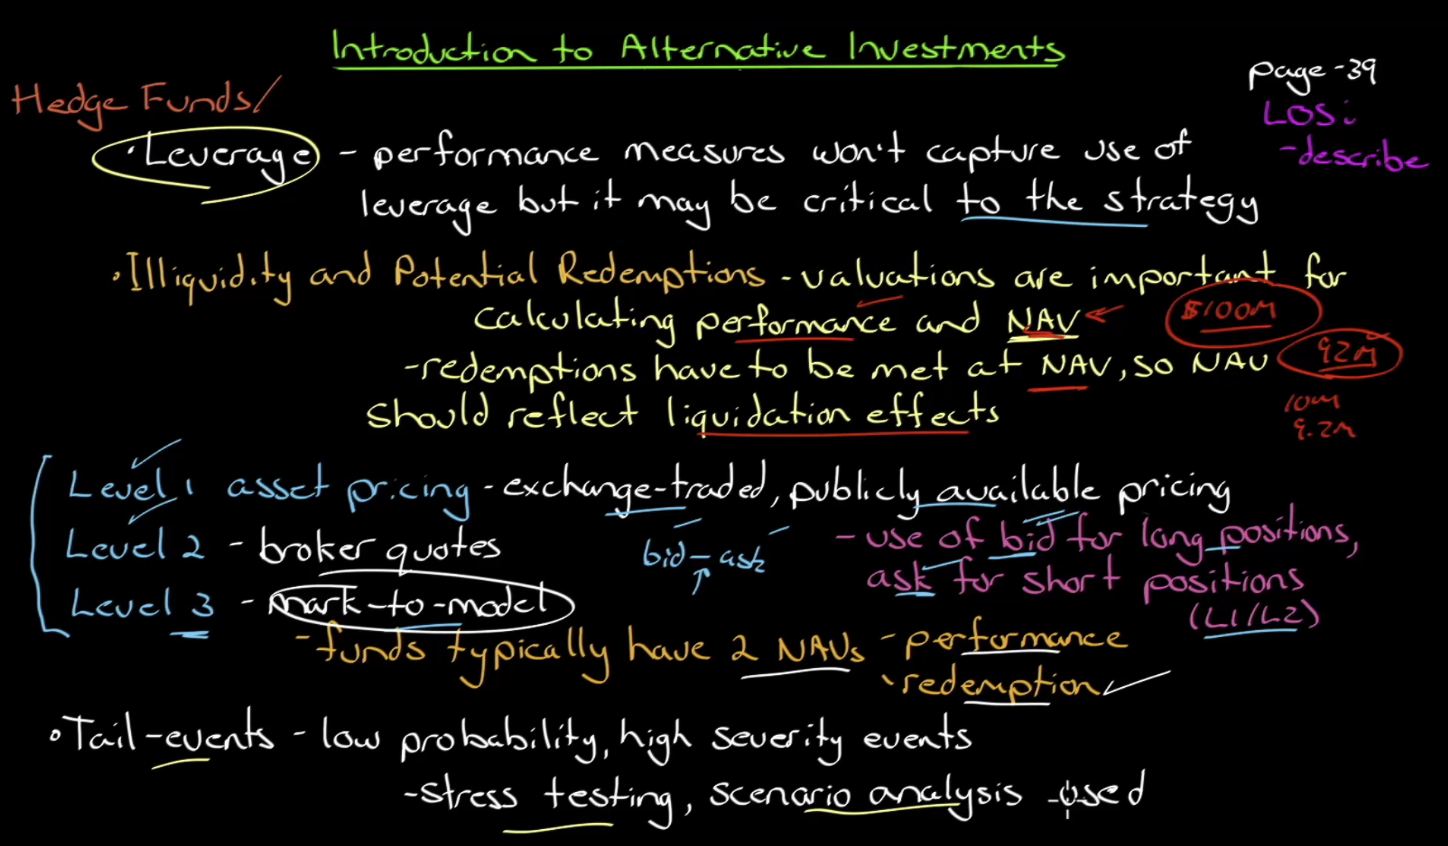 Introduction to Alternative Investments
page-39
Hedge Funds/
LOS:
-describe
·Leverage - performance measures won't capture use of
leverage but it may be critical to the strategy
·Illiquidity and Potential Redemptions - valuations are important for
calculating performance and NAV
$100M
-redemptions have to be met at NAV, so NAV
92M
should reflect liquidation effects
10M
9.2M
Level 1 asset pricing - exchange-traded, publicly available pricing
Level 2 - broker quotes
bid-ask
- use of bid for long positions,
ask for short positions
(L1/L2)
Level 3 - mark-to-model
-funds typically have 2 NAVs - performance
·redemption
·Tail-events - low probability, high severity events
-stress testing, scenario analysis used